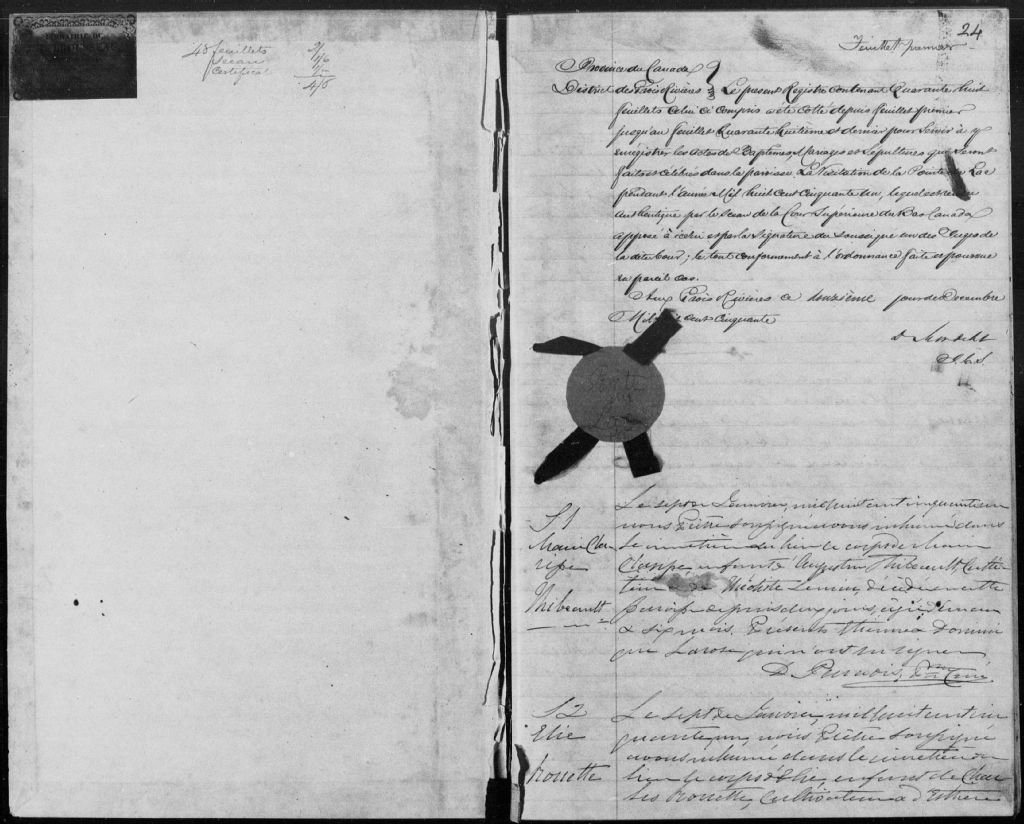 48 feuillets
Sceau
Certificat
24
Feuillet premier
Province du Canada
District des Trois Rivières Le present Registre contenant Quarante huit
feuillets celui ci compris a été cotté depuis feuillet premier
jusqu'au feuillet Quarante huitieme et dernier pour servir à y
enrégistrer les actes de Baptemes, Mariages et Sépultures qui seront
faits et célébrés dans la paroisse La Visitation de la Pointe du Lac
pendant l'année Mil huit Cent Cinquante un, lequel est rendu
authentique par le Sceau de la Cour Supérieure du Bas Canada
apposé à icelui et par la Signature du soussigné un des Juges de
la dite Cour; le tout conformement à l'ordonnance faite et pourvue
en pareil cas.
Aux Trois Rivières ce douzième jour de Decembre
Mil huit cent Cinquante
D Mondelet
J.C.S.
S 1
Marie Cla-
risse
Thibeault
Le sept de Janvier, mil huit cent cinquante un
nous Prêtre soussigné avons inhumé dans
le cimetière du lieu le corps de Marie
Clarisse, enfant d'Augustin Thibeault, Culti-
teur & de Lemire, décédée en cette
Paroisse depuis deux jours, âgée de un an
& six mois. Présents Etienne & Domini
que Larose qui n'ont su signer
Ptre Curé.
S 2
Elie
Rouette
Le sept de Janvier, mil huit cent cin
quante, un, nous Prêtre soussigné
avons inhumé dans le cimetière du
lieu le corps d'Elie, enfant de Char
les Rouette, Cultivateur & d'Esthere